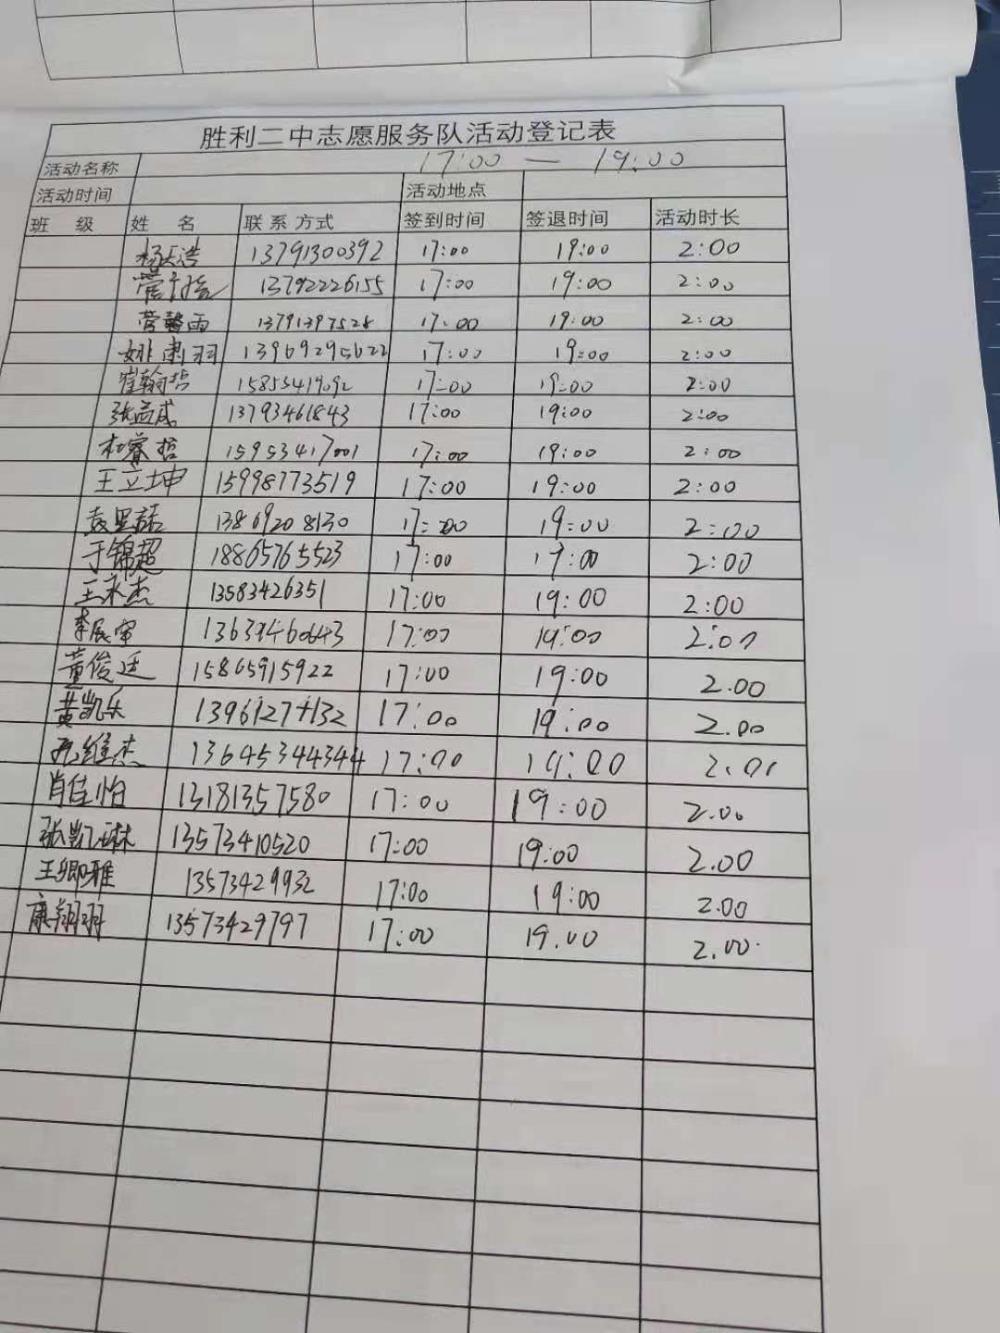 胜利二中志愿服务队活动登记表
活动名称 17:00 — 19:00
活动时间 活动地点
班 级 姓 名 联系方式 签到时间 签退时间 活动时长
13791300392 17:00 19:00 2:00
13792226155 17:00 19:00 2:00
13791397528 17:00 19:00 2:00
13969295622 17:00 19:00 2:00
崔翰哲 15853419092 17:00 19:00 2:00
张益成 13793461843 17:00 19:00 2:00
杜睿哲 15953417001 17:00 19:00 2:00
王立坤 15998773519 17:00 19:00 2:00
13869208130 17:00 19:00 2:00
于锦超 18865765523 17:00 19:00 2:00
王永杰 13583426351 17:00 19:00 2:00
李展宁 17:00 19:00 2:00
董俊廷 15865915922 17:00 19:00 2.00
黄凯乐 17:00 19:00 2.00
维杰 13645344344 17:00 19:00 2.00
肖佳怡 13181357580 17:00 19:00 2.00
张凯琳 13573410520 17:00 19:00 2.00
王卿雅 13573429932 17:00 19:00 2.00
康翔羽 13573429797 17:00 19.00 2.00